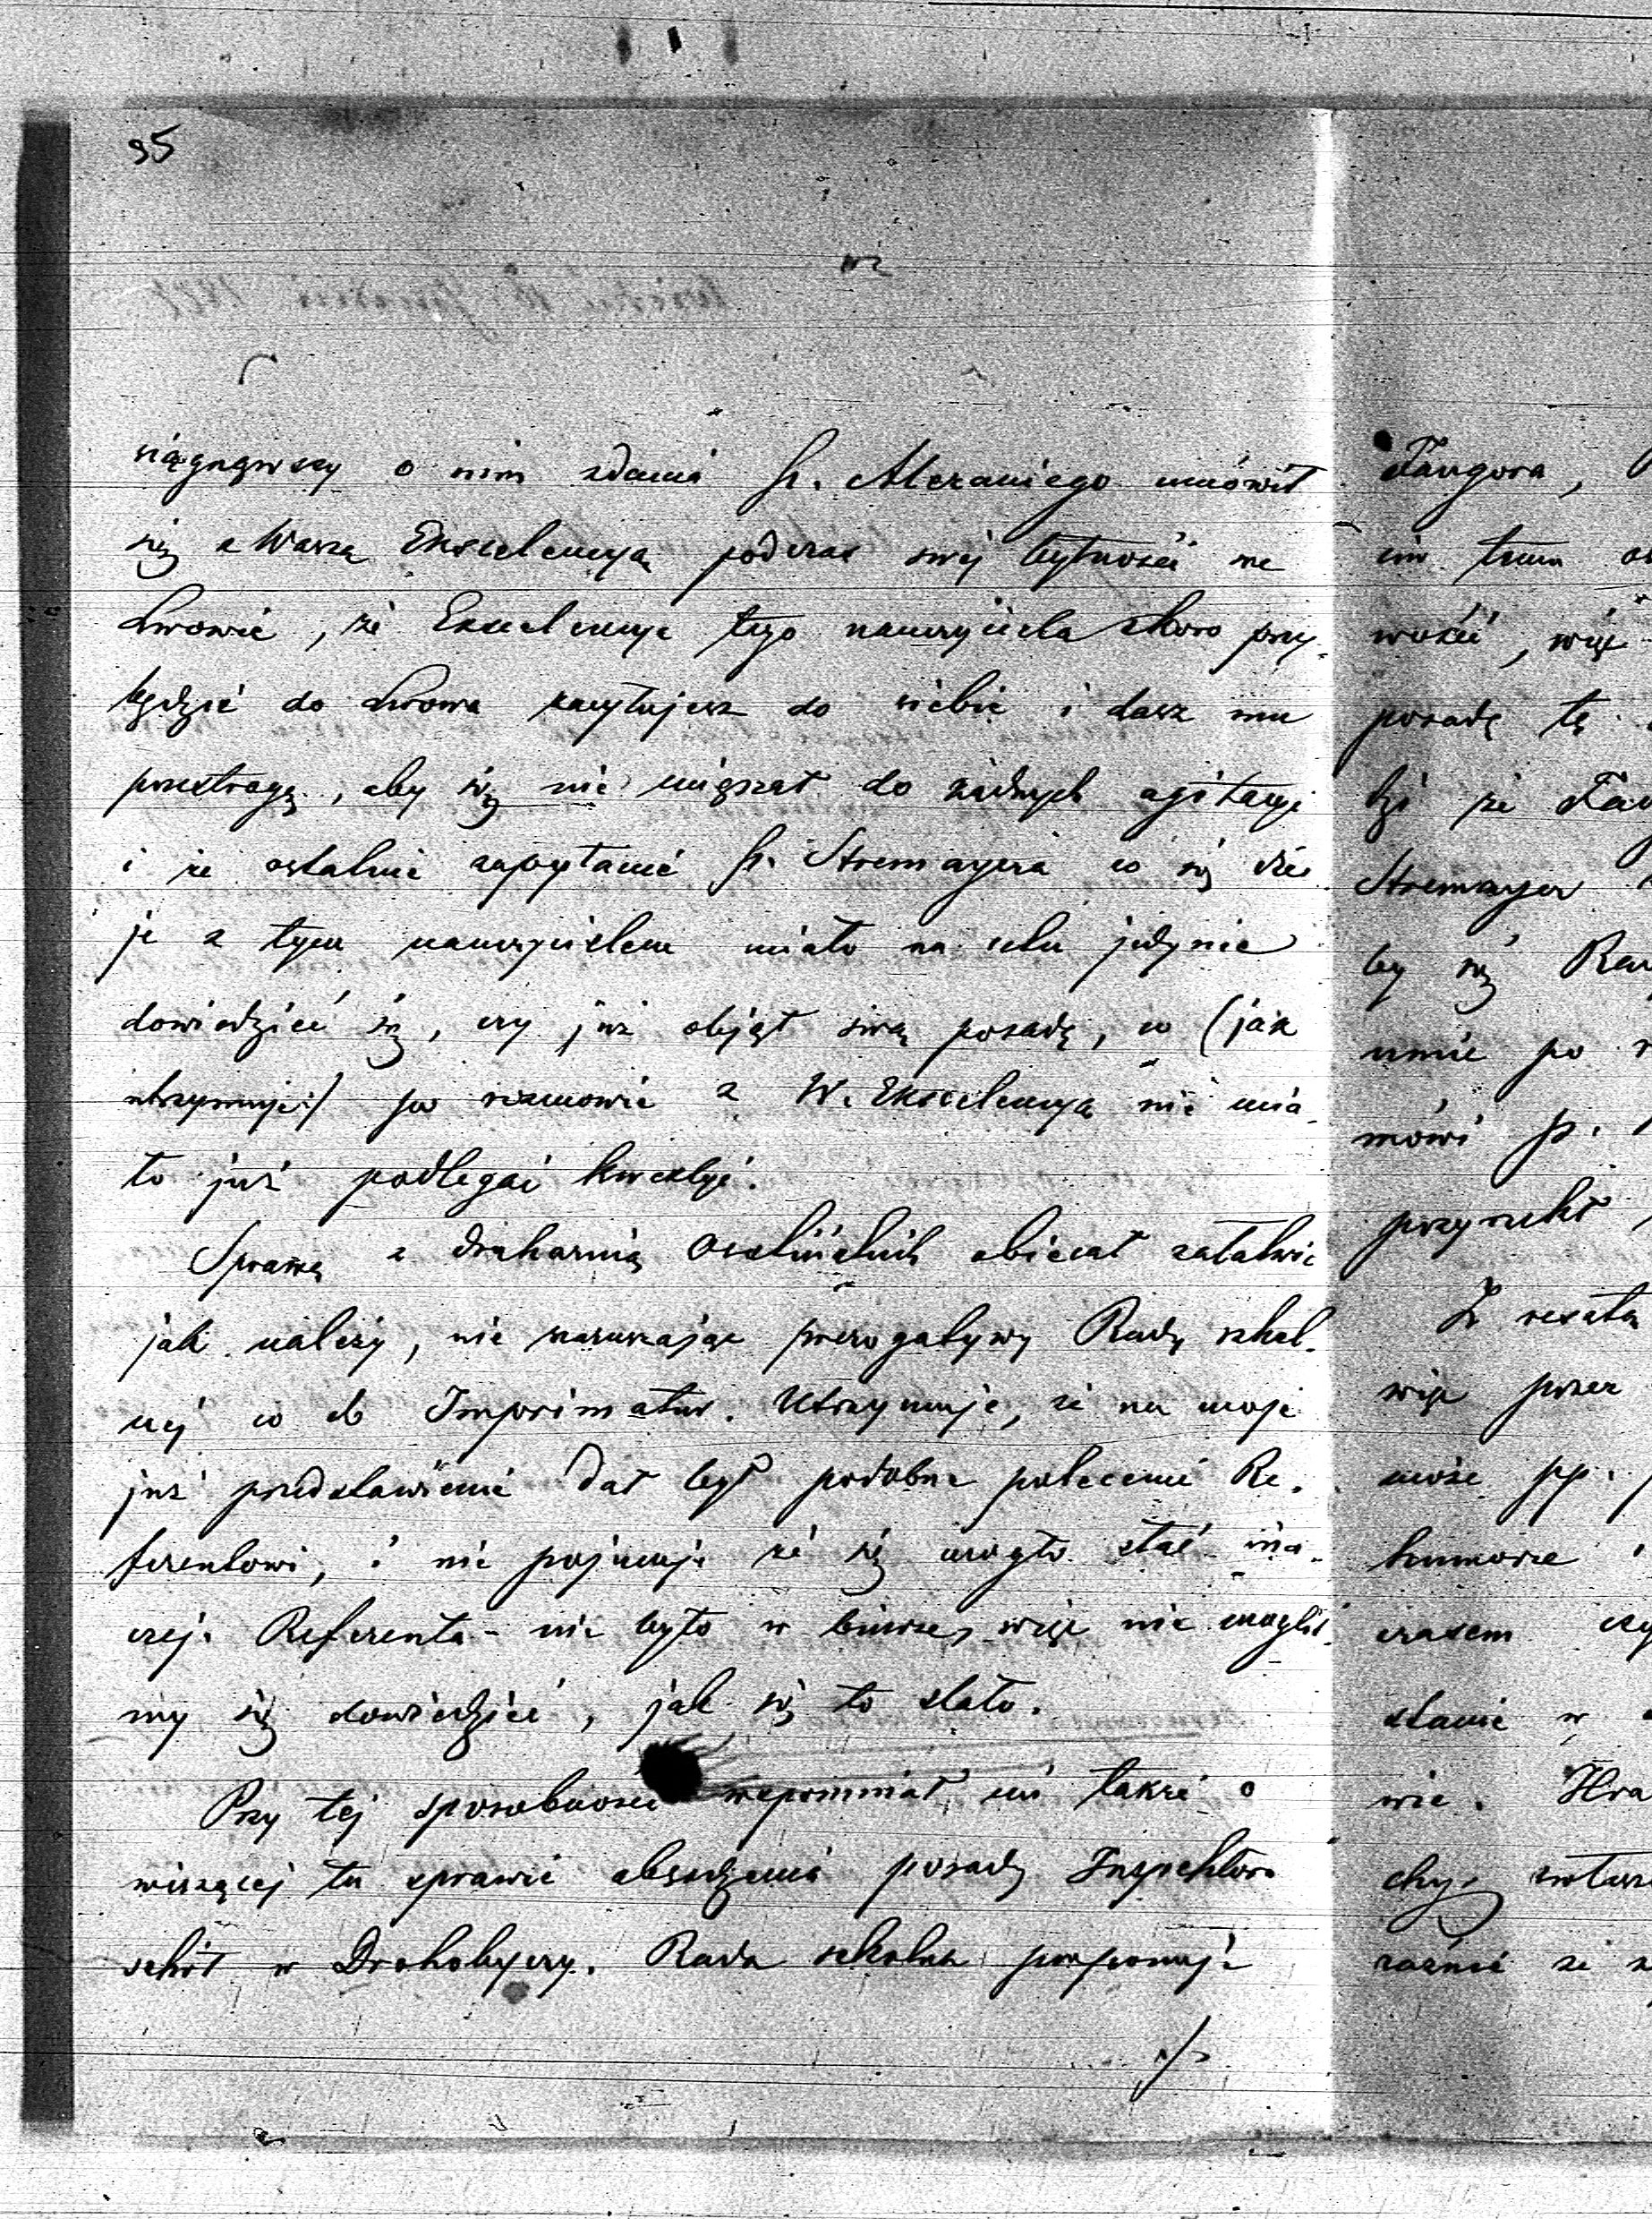 95
siągnąwszy o nim zdania p. Alezaniego umówił
się z Waszą Ekscelencyą podczas swej bytności we
Lwowie, że Excelencya tego nauczyciela skoro przy-
będzie do Lwowa zacytujesz do siebie i dasz mu
przestrogę, aby się nie mięszał do żadnych agitacyi
i że ostatnie zapytanie p. Stremayera co się dzie-
je z tym nauczycielem miało na celu jedynie
dowiedzieć się, czy już objął swą posadę, co (jak
utrzymuje:) po rozmowie z W. Ekscelencyą nie mia-
ło już podlegać kwestyi.
Sprawę z drukarnią Ossolińskich obiecał załatwić
jak należy, nie naruszając prerogatywy Rady szkol-
nej co do Imprimatur. Utrzymuje, że na moje
już przedstawienie dał był podobne polecenie Re-
ferentowi, i nie pojmuje że się mogło stać ina-
czej. Referenta - nie było w biurze, więc nie mogliś-
my się dowiedzieć, jak się to stało.
Przy tej sposobności wspomniał mi także o
wiszącej tu sprawie obsadzenia posady Inspektora
szkół w Drohobyczy. Rada szkolna proponuje
./.
Fangora,
tem
wości, więc
posadę tę
dzi że Fan
Stremayer
by się
umie po
mówi p.
przyrzekł
Z resztą
więc przez
może pp.
humorze
czasem
stanie w
wie. Hra